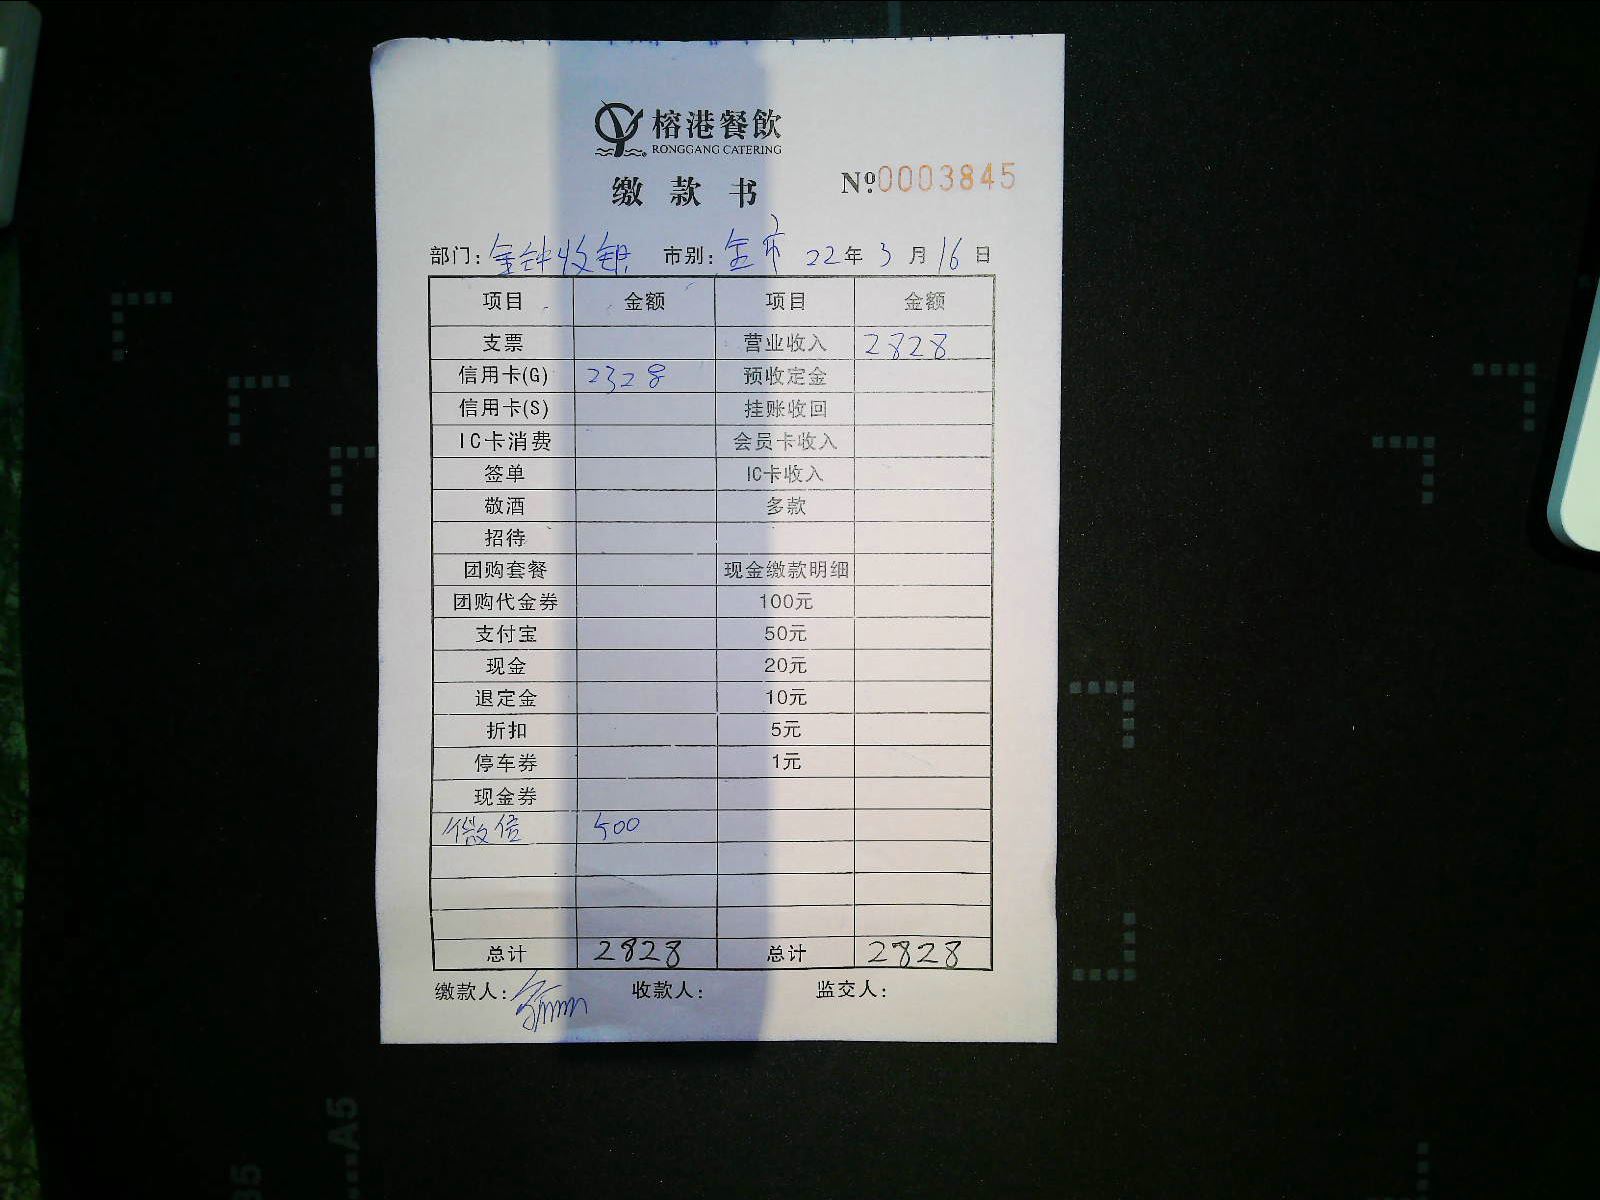 榕港餐飲
RONGGANG CATERING
缴款书
Nº:0003845
部门: 金钟收银 市别: 全市 22年3月16日
项目 金额 项目 金额
支票 营业收入 2828
信用卡(G) 2328 预收定金
信用卡(S) 挂账收回
IC卡消费 会员卡收入
签单 IC卡收入
敬酒 多款
招待
团购套餐 现金缴款明细
团购代金券 100元
支付宝 50元
现金 20元
退定金 10元
折扣 5元
停车券 1元
现金券
微信 500
总计 2828 总计 2828
缴款人: 收款人: 监交人:
A5